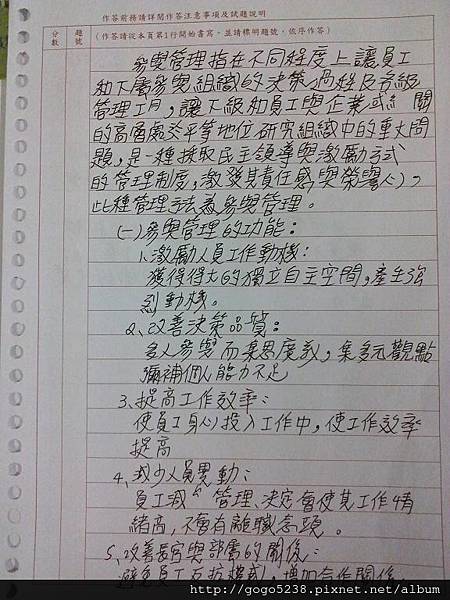 作答前務請詳閱作答注意事項及試題說明
分數
題號
（作答請從本頁第1行開始書寫，並請標明題號，依序作答）
參與管理指在不同程度上讓員工
和下屬參與組織的決策過程及各級
管理工作，讓下級和員工與企業或組關
的高層處於平等地位研究組織中的重大問
題，是一種採取民主領導與激勵方式
的管理制度，激發其責任感與榮譽心，
此種管理方法為參與管理。
(一)參與管理的功能：
1、激勵人員工作動機：
獲得得大的獨立自主空間，產生強
烈動機。
2、改善決策品質：
多人參與而集思廣義，集多元觀點
彌補個人能力不足
3、提高工作效率：
使員工身心投入工作中，使工作效率
提高
4、減少人員異動：
員工減 管理、決定會使其工作情
緒高，不會有離職念頭。
5、改善長官與部屬的關係：
避免員工反抗 ，增加合作關係
http://gogo5238.pixnet.net/blog